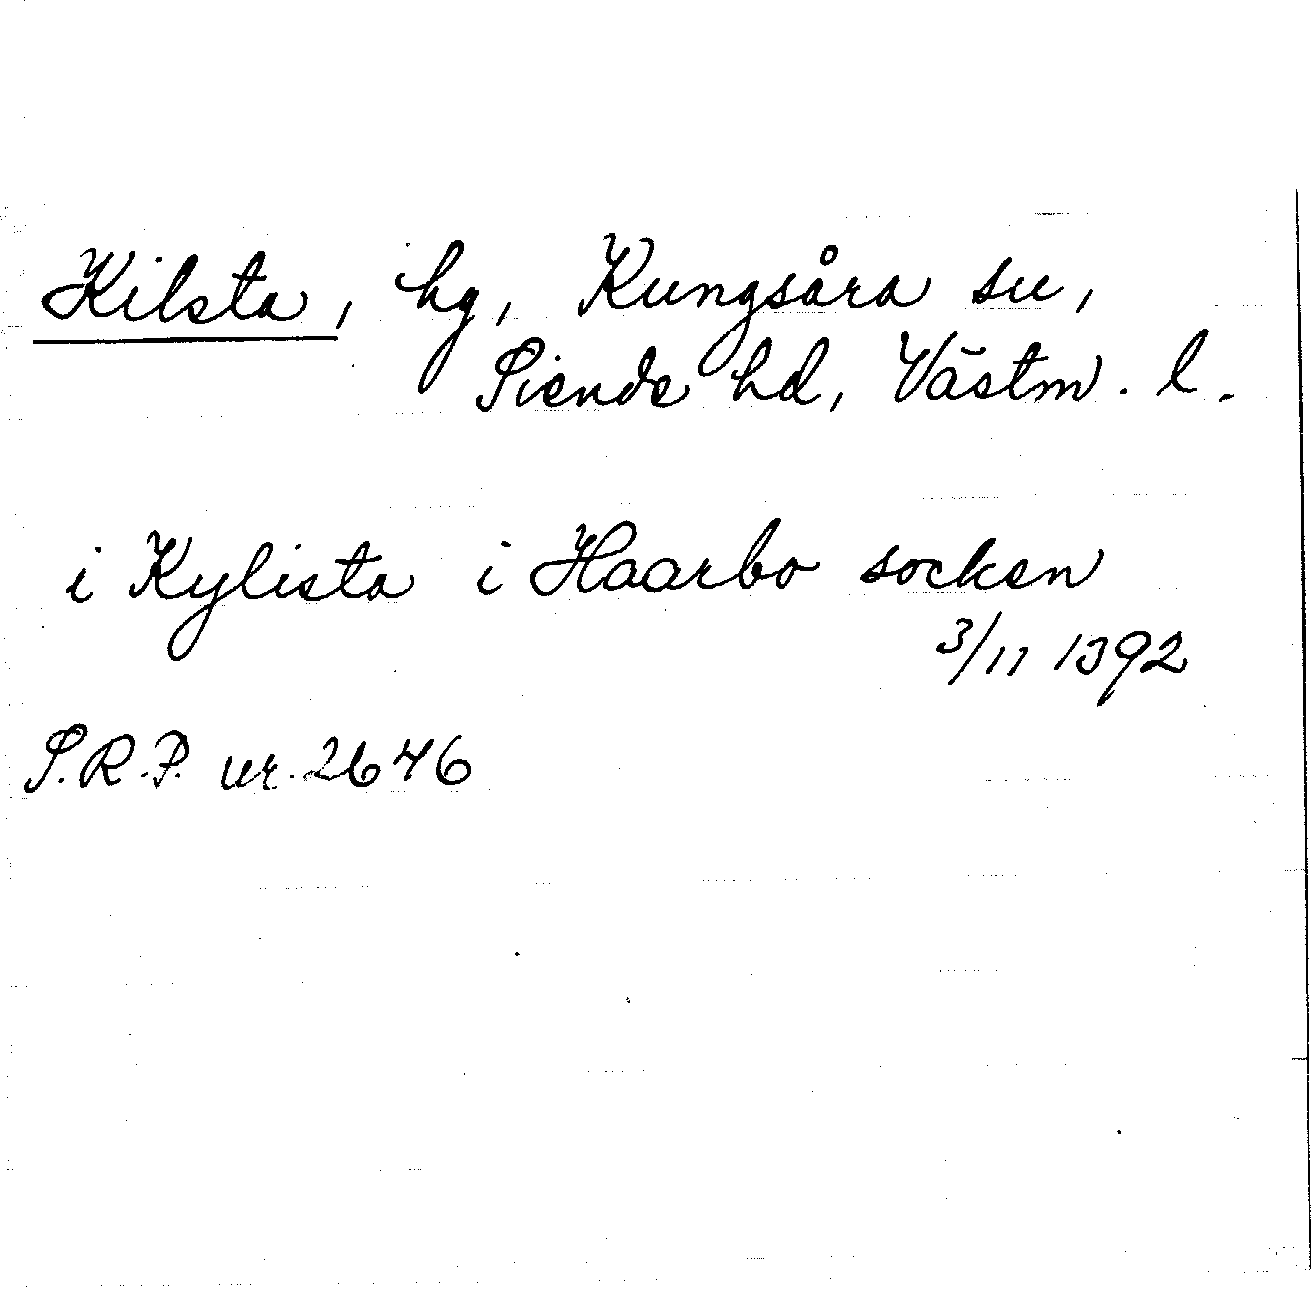 Kilsta, hg, Kungsåra sn,
Siende hd, Västm. l.
i Kylista i Haarbo socken
3/11 1392
S.R.P. nr. 2646